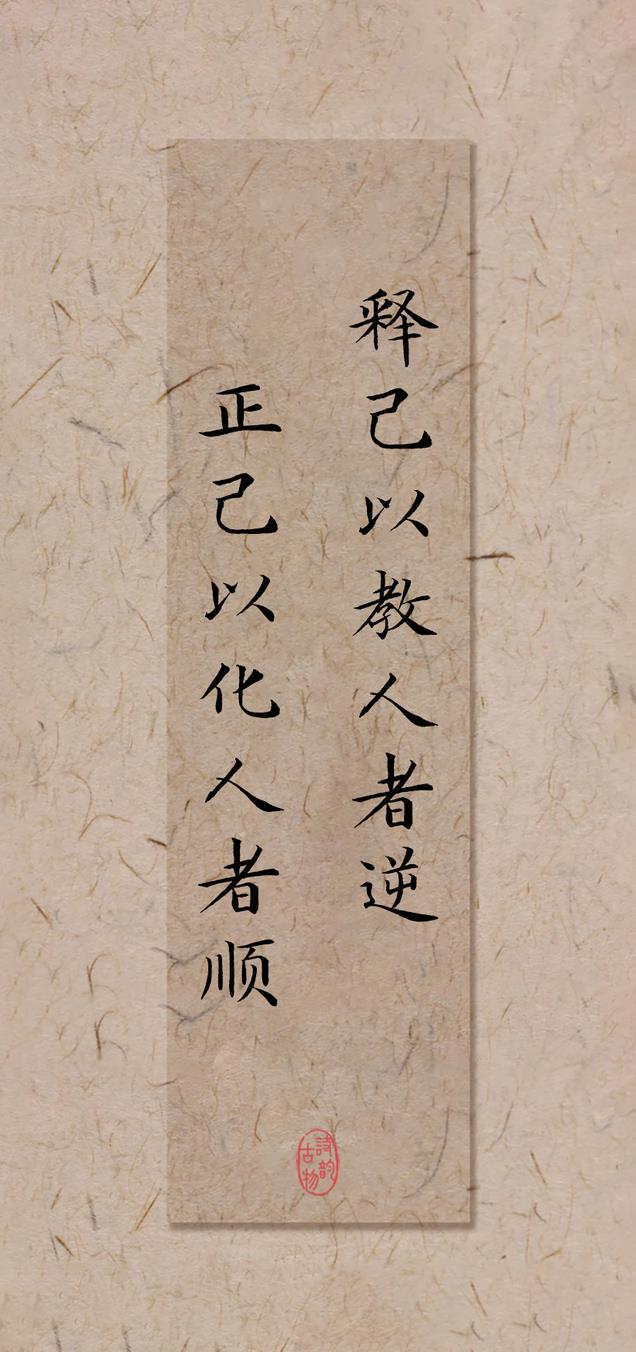 释己以教人者逆
正己以化人者顺
詩韵
古物